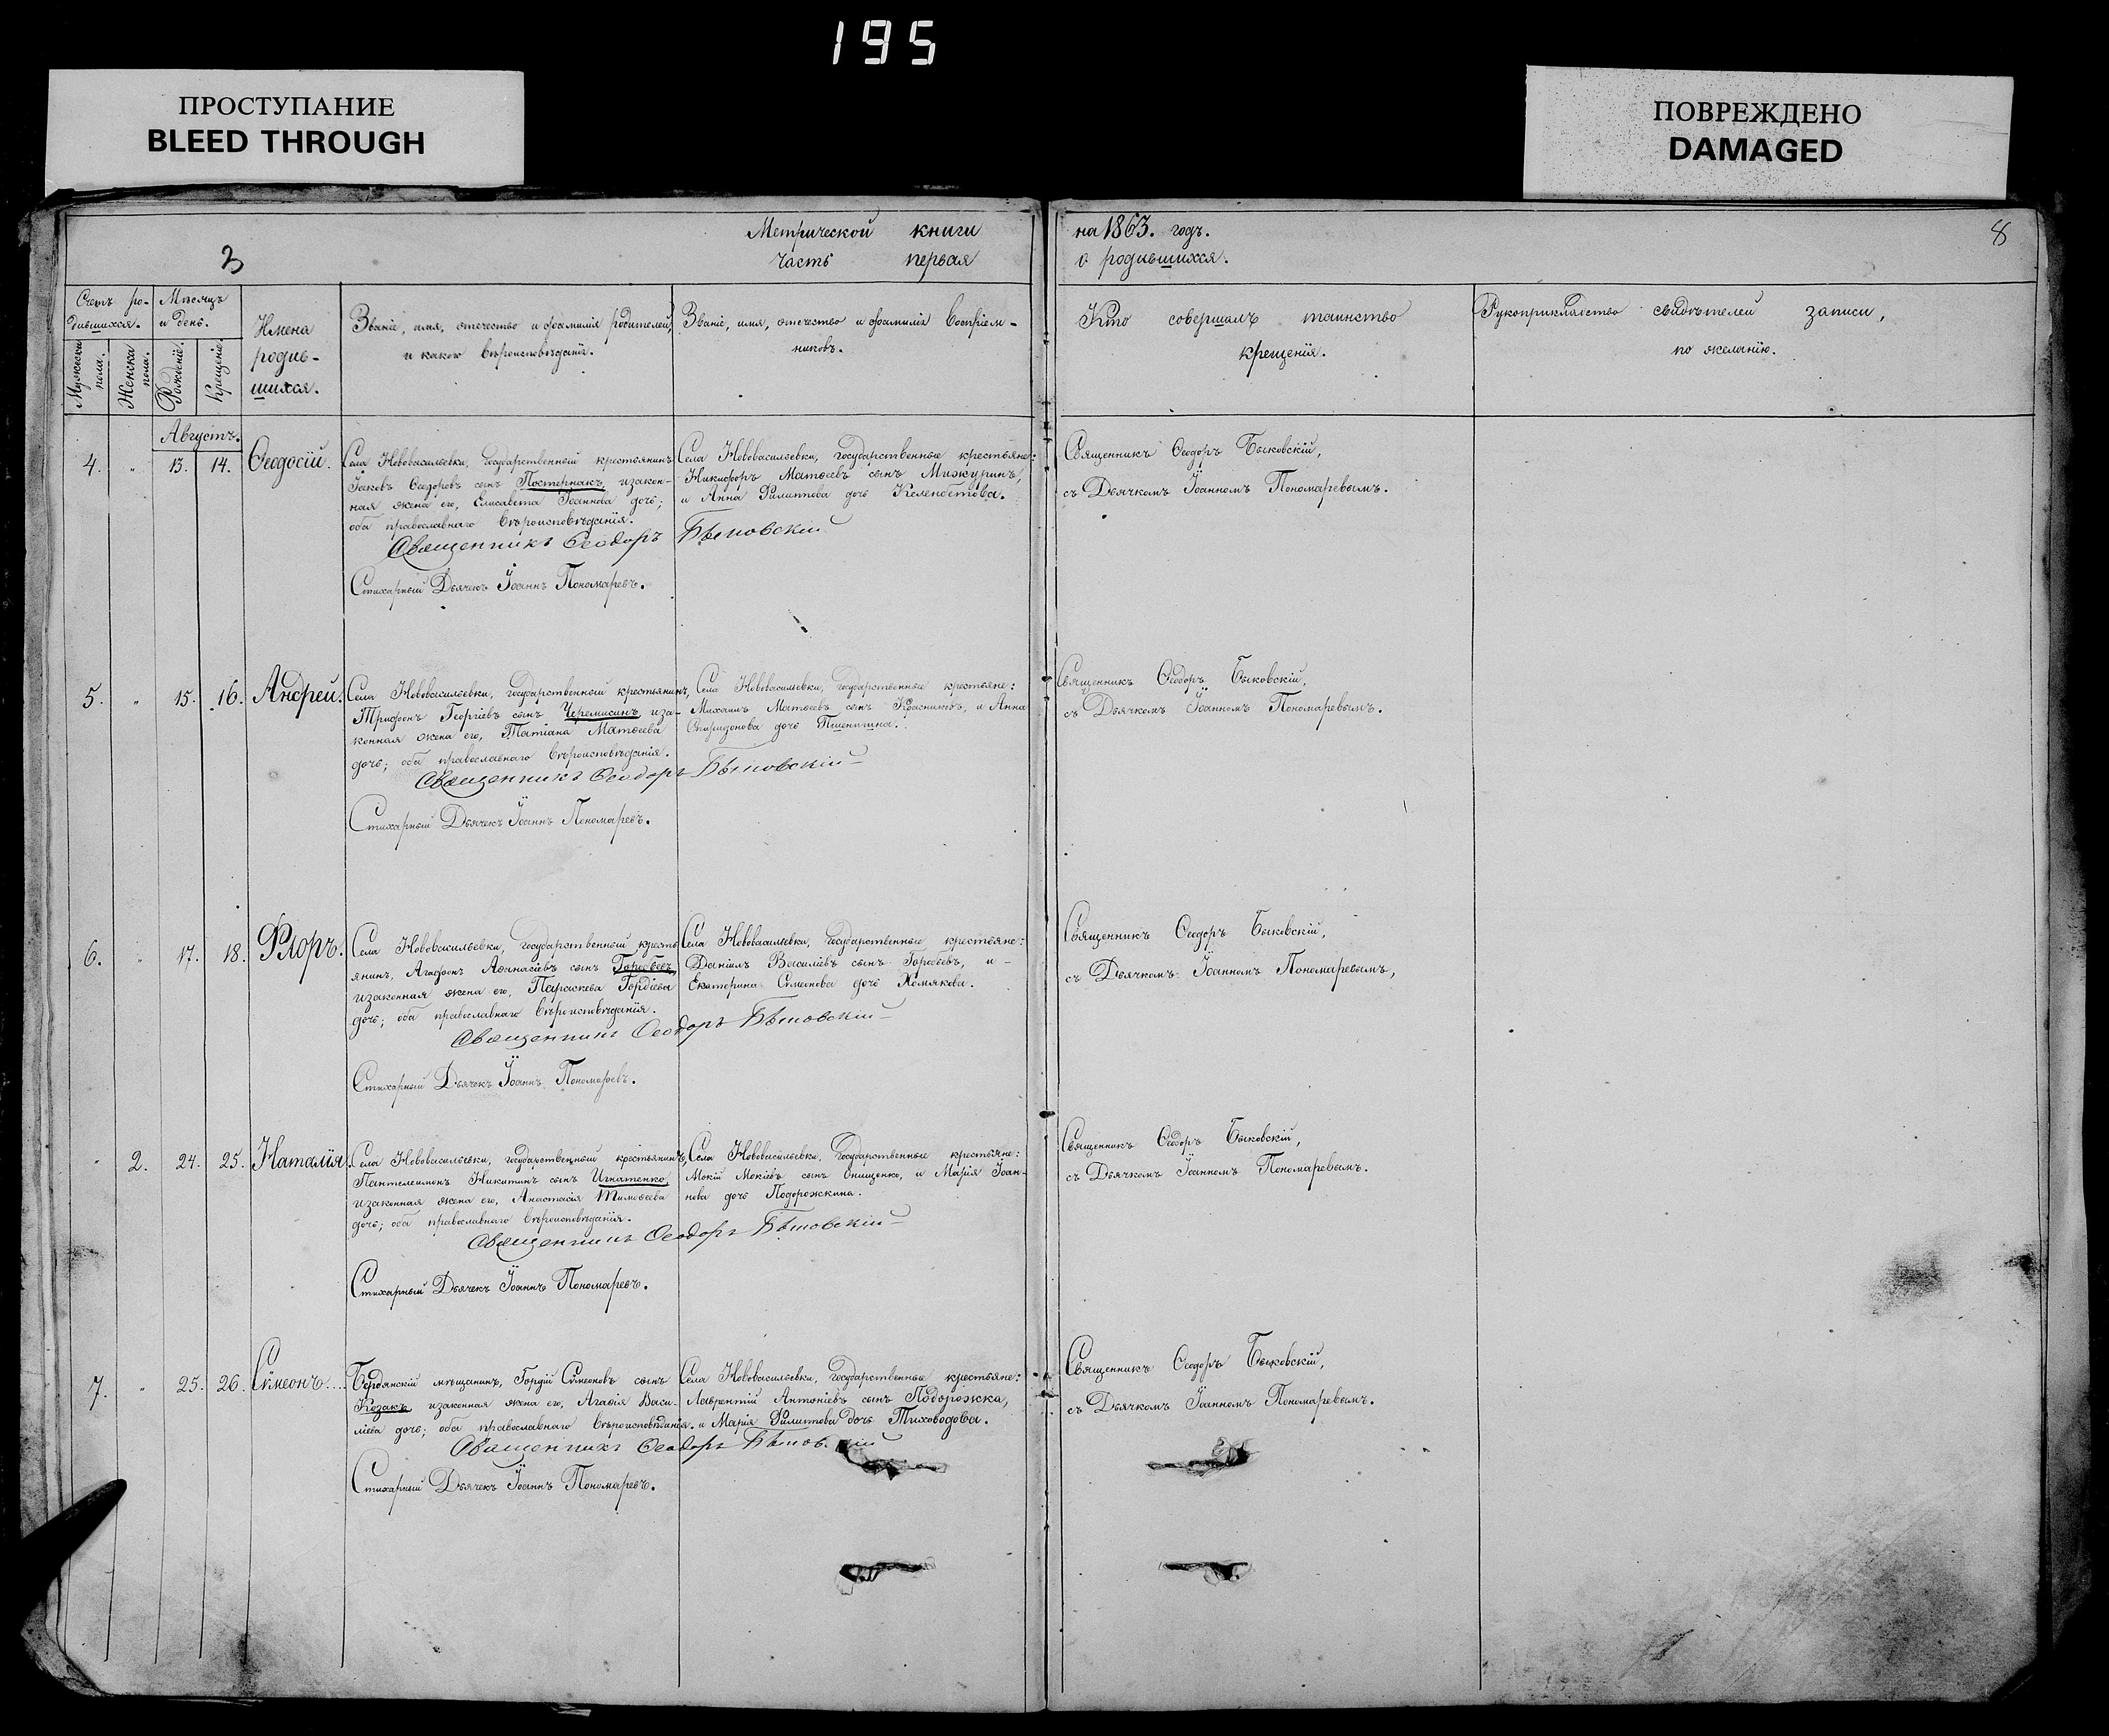 195
ПРОСТУПАНИЕ
BLEED THROUGH
ПОВРЕЖДЕНО
DAMAGED
Метрической книги
на 1863. годъ.
8
3
часть первая
о родившихся.
Счетъ ро-
дившихся.
Мужеска пола.
Женска пола.
Мѣсяцъ
и день.
Рожденіе.
Крещеніе.
Имена
родив-
шихся.
Званіе, имя, отечество и фамилія родителей,
и какого вѣроисповѣданія.
Званіе, имя, отечество и фамилія воспріем-
никовъ.
Кто совершалъ таинство
крещенія.
Рукоприкладство свидѣтелей записи,
по желанію.
Августъ.
4. " 13. 14. Ѳеодосій.
Села Нововасильевки, государственный крестьянинъ
Іаковъ Ѳеодоровъ сынъ Постернакъ, изакон-
ная жена его, Елисавета Іоаннова дочь;
оба православнаго вѣроисповѣданія.
Села Нововасильевки, государственные крестьяне:
Никифоръ Матѳеевъ сынъ Мижуринъ,
и Анна Филиппова дочь Келембетова.
Священникъ Ѳеодоръ Быковскій,
съ Дьячкомъ Іоанномъ Пономаревымъ.
Священникъ Ѳеодоръ Быковскій
Стихарный Дьячекъ Іоаннъ Пономаревъ.
5. " 15. 16. Андрей.
Села Нововасильевки, государственный крестьянинъ,
Трифонъ Георгіевъ сынъ Черемисинъ, иза-
конная жена его, Татіана Матѳеева
дочь; оба православнаго вѣроисповѣданія.
Села Нововасильевки, государственные крестьяне:
Михаилъ Матѳеевъ сынъ Красниковъ, и Анна
Спиридонова дочь Пшенишна.
Священникъ Ѳеодоръ Быковскій,
съ Дьячкомъ Іоанномъ Пономаревымъ.
Священникъ Ѳеодоръ Быковскій
Стихарный Дьячекъ Іоаннъ Пономаревъ.
6. " 17. 18. Флоръ.
Села Нововасильевки, государственный кресть-
янинъ, Агафонъ Аѳанасіевъ сынъ Горобьевъ,
изаконная жена его, Параскева Гордіева
дочь; оба православнаго вѣроисповѣданія.
Села Нововасильевки, государственные крестьяне:
Даніилъ Василіевъ сынъ Горобьевъ, и -
Екатерина Сѵмеонова дочь Хомякова.
Священникъ Ѳеодоръ Быковскій,
съ Дьячкомъ Іоанномъ Пономаревымъ,
Священникъ Ѳеодоръ Быковскій
Стихарный Дьячекъ Іоаннъ Пономаревъ.
" 2. 24. 25. Наталія.
Села Нововасильевки, государственный крестьянинъ,
Пантелеимонъ Никитинъ сынъ Игнатенко,
изаконная жена его, Анастасія Тимоѳеева
дочь; оба православнаго вѣроисповѣданія.
Села Нововасильевки, государственные крестьяне:
Мокій Мокіевъ сынъ Онищенко, и Марія Іоан-
нова дочь Подорожкина.
Священникъ Ѳеодоръ Быковскій,
съ Дьячкомъ Іоанномъ Пономаревымъ.
Священникъ Ѳеодоръ Быковскій
Стихарный Дьячекъ Іоаннъ Пономаревъ.
7. " 25. 26. Сѵмеонъ...
Бердянскій мѣщанинъ, Гордій Сѵмеоновъ сынъ
Козакъ, изаконная жена его, Агаѳія Васи-
ліева дочь; оба православнаго вѣроисповѣданія.
Села Нововасильевки, государственные крестьяне:
Лаврентій Антоніевъ сынъ Подорожка,
и Марія Филиппова дочь Тиховодова.
Священникъ Ѳеодоръ Быковскій,
съ Дьячкомъ Іоанномъ Пономаревымъ.
Священникъ Ѳеодоръ Быковскій
Стихарный Дьячекъ Іоаннъ Пономаревъ.